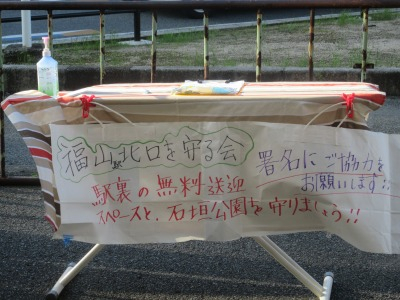 福山駅北口を守る会
署名にご協力を
お願いします!!
駅裏の無料送迎
スペースと、石垣公園を守りましょう!!